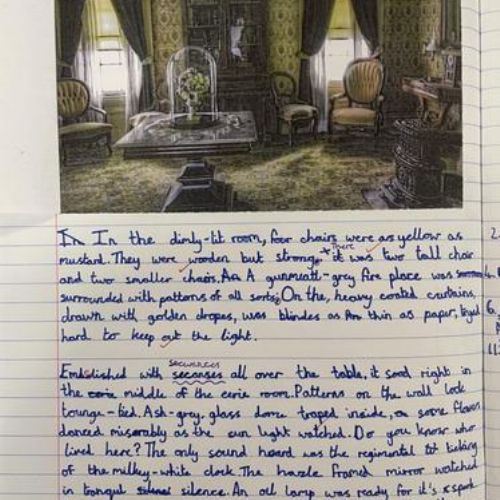 In In the dimly-lit room, four chairs were as yellow as
mustard. They were wooden but strong, + There it was two tall chair
and two smaller chairs. As A gunmeatl-grey fire place was
surrounded with patterns of all sorts; On the, heavy coated curtains,
drawn with golden dropes, was blindes as thin as paper,
hard to keep out the light.
secuences
Embelished with secenses all over the table, it sood right in
the eerie middle of the eerie room. Patterns on the wall look
tounge-tied. Ash-gray, glass dome traped inside, some flowers
danced miserably as the sun light watched. Do you know who
lived here? The only sound heard was the regimental tot ticking
of the milkey-white clock. The hazle framed mirror watched
in tranqul silence. An oil lamp was ready for it's spark
2.
6.